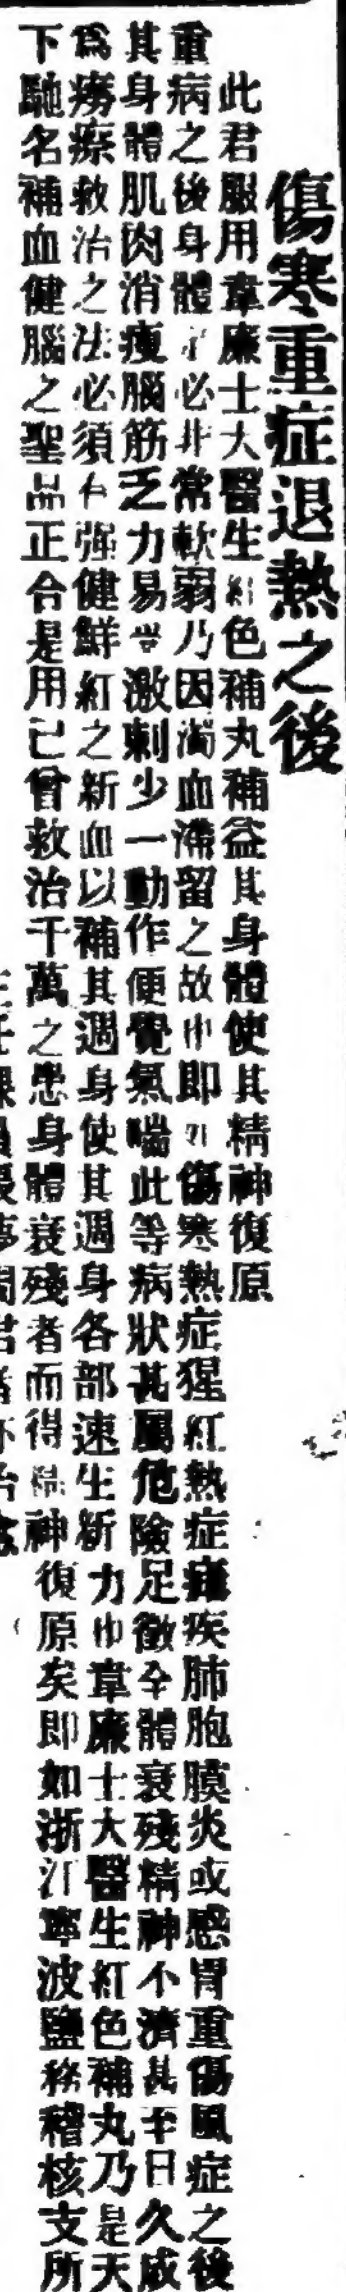 傷寒重症退熱之後
此君服用韋廉士大醫生紅色補丸補益其身體使其精神復原
重病之後身體必非常軟弱乃因濁血滯留之故也即如傷寒熱症猩紅熱症瘧疾肺胞膜炎或感冒重傷風症之後
其身體肌肉消瘦腦筋乏力易受激刺少一動作便覺氣喘此等病狀甚屬危險足徵全體衰殘精神不濟甚至日久成
為癆瘵救治之法必須有強健鮮紅之新血以補其週身使其週身各部速生新力也韋廉士大醫生紅色補丸乃是天
下馳名補血健腦之聖品正合是用已曾救治千萬之患身體衰殘者而得精神復原矣即如浙江寧波鹽務稽核支所